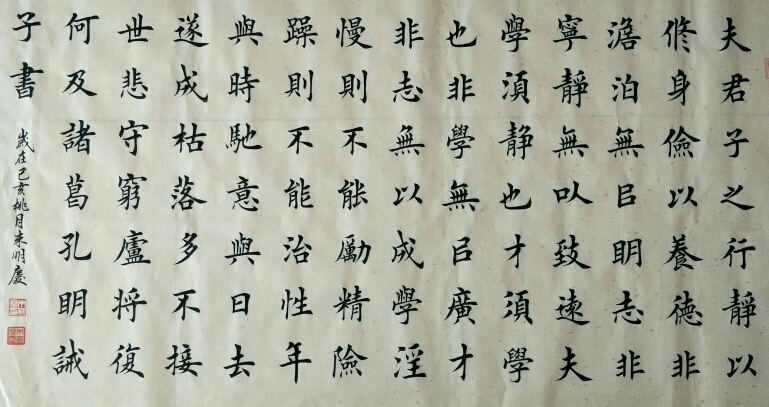 夫君子之行靜以
修身儉以養德非
澹泊無㠯明志非
寧靜無㕥致遠夫
學須靜也才須學
也非學無㠯廣才
非志無以成學淫
慢則不能勵精險
躁則不能治性年
與時馳意與日去
遂成枯落多不接
世悲守窮廬將復
何及諸葛孔明誡
子書
歲在己亥桃月朱明慶